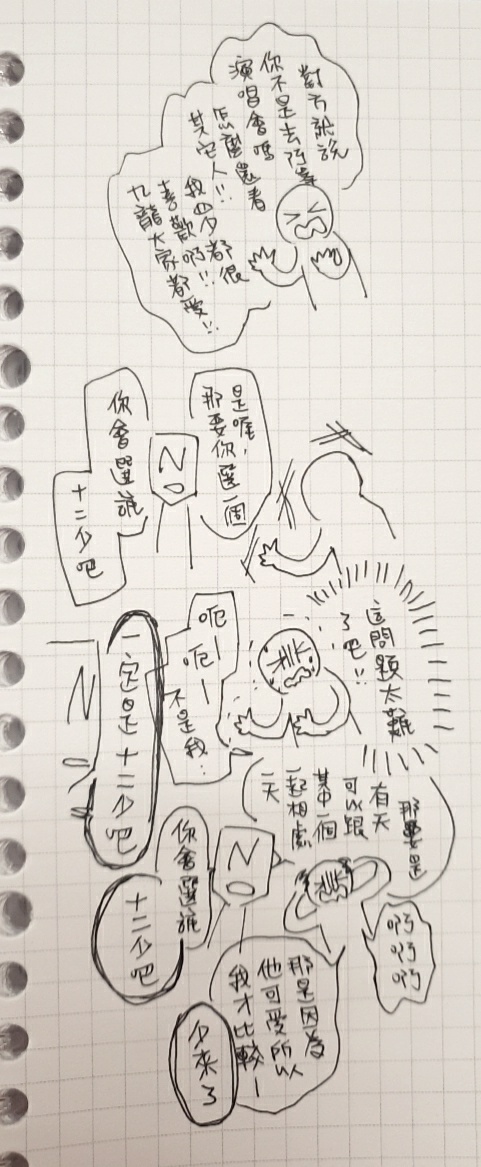 對方就說
你不是去阿輩
演唱會嗎
怎麼還看
其它人!!
我四夕都很
喜歡啊!!
九龍大家都愛!!
是喔,
那要你選一個
NO
你會選誰
十二少吧
這問題太難
了吧!!
呃—
呃—
不是我…
一定是十二少吧
NO
那要是
有天
可以跟
其中一個
一起相處
一天
NO
你會選誰
十二少吧
啊啊啊
那是因為
他可愛所以
我才比較—
夕來了